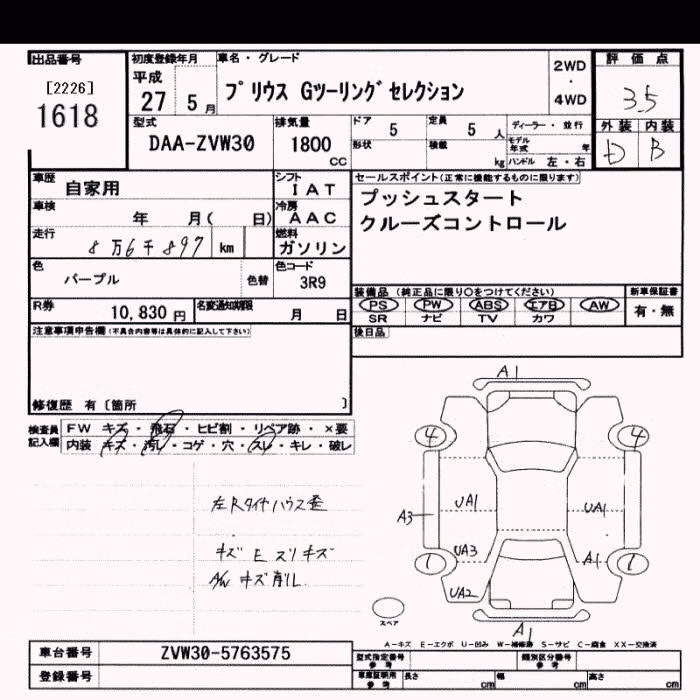 出品番号
[2226]
1618
初度登録年月
平成
27 5 月
車名・グレード
プリウス Gツーリングセレクション
2WD
・
4WD
評価点
3.5
外装 内装
D B
型式
DAA-ZVW30
排気量
1800
CC
ドア 5 定員 5 人
形状 積載 kg
ディーラー・並行
モデル年式 年
ハンドル 左・右
車歴 自家用
シフト
IAT
車検 年 月( 日)
冷房
AAC
走行 8万6千897 km
燃料
ガソリン
色
パープル
色替
色コード
3R9
R券 10,830 円
名変通知期限 月 日
セールスポイント(正常に機能するものに限ります)
プッシュスタート
クルーズコントロール
装備品(純正品に限り○をつけてください)
PS PW ABS エアB AW
SR ナビ TV カワ
新車保証書
有・無
後日品
注意事項申告欄(不具合内容等は具体的に記入して下さい)
修復歴 有〔箇所 〕
検査員
記入欄
FW キズ・飛石・ヒビ割・リペア跡・×要
内装 キズ・汚レ・コゲ・穴・スレ・キレ・破レ
左Rタイヤハウス歪
キズ E スリキズ
A/W キズ 削レ
A1
4 4
A3 UA1 UA1
UA3 A1
1 1
UA2
A1
スペア
A-キズ E-エクボ U-凹み W-補修跡 S-サビ C-腐食 XX-交換済
車台番号 ZVW30-5763575
登録番号
型式指定番号
参考
類別区分番号
参考
車庫証明用
参考
長さ cm 幅 cm 高さ cm